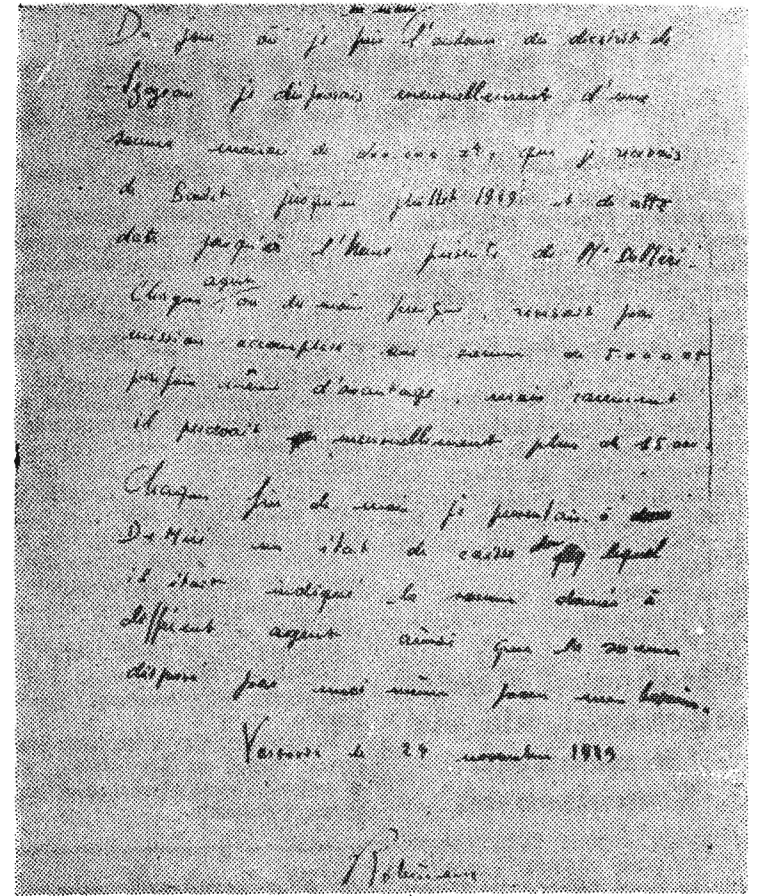 Du jour où je fus l'auteur du district de
je disposais mensuellement d'une
somme de 200.000 zł, que je recevais
de jusqu'en juillet 1949 et de cette
date jusqu'à l'heure présente de Mr DeMéré.
Chaque agent, ou du moins presque, recevait par
mission accomplie une somme de 5.000
parfois même d'avantage, mais rarement
il percevait mensuellement plus de 15.000.
Chaque fin de mois je présentais à
De Méré un état de caisse sur lequel
il était indiqué la somme donnée à
différent agent ainsi que la somme
disposé par moi même pour mes besoins.
Varsovie le 29 novembre 1949
Robineau